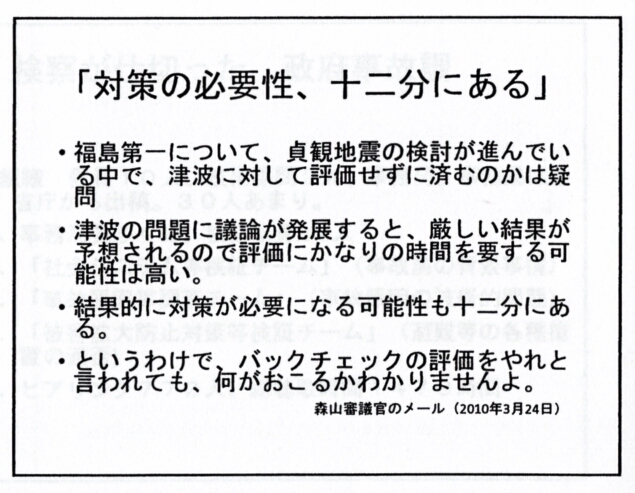 「対策の必要性、十二分にある」
・福島第一について、貞観地震の検討が進んでい
る中で、津波に対して評価せずに済むのかは疑
問
・津波の問題に議論が発展すると、厳しい結果が
予想されるので評価にかなりの時間を要する可
能性は高い。
・結果的に対策が必要になる可能性も十二分にあ
る。
・というわけで、バックチェックの評価をやれと
言われても、何がおこるかわかりませんよ。
森山審議官のメール（2010年3月24日）